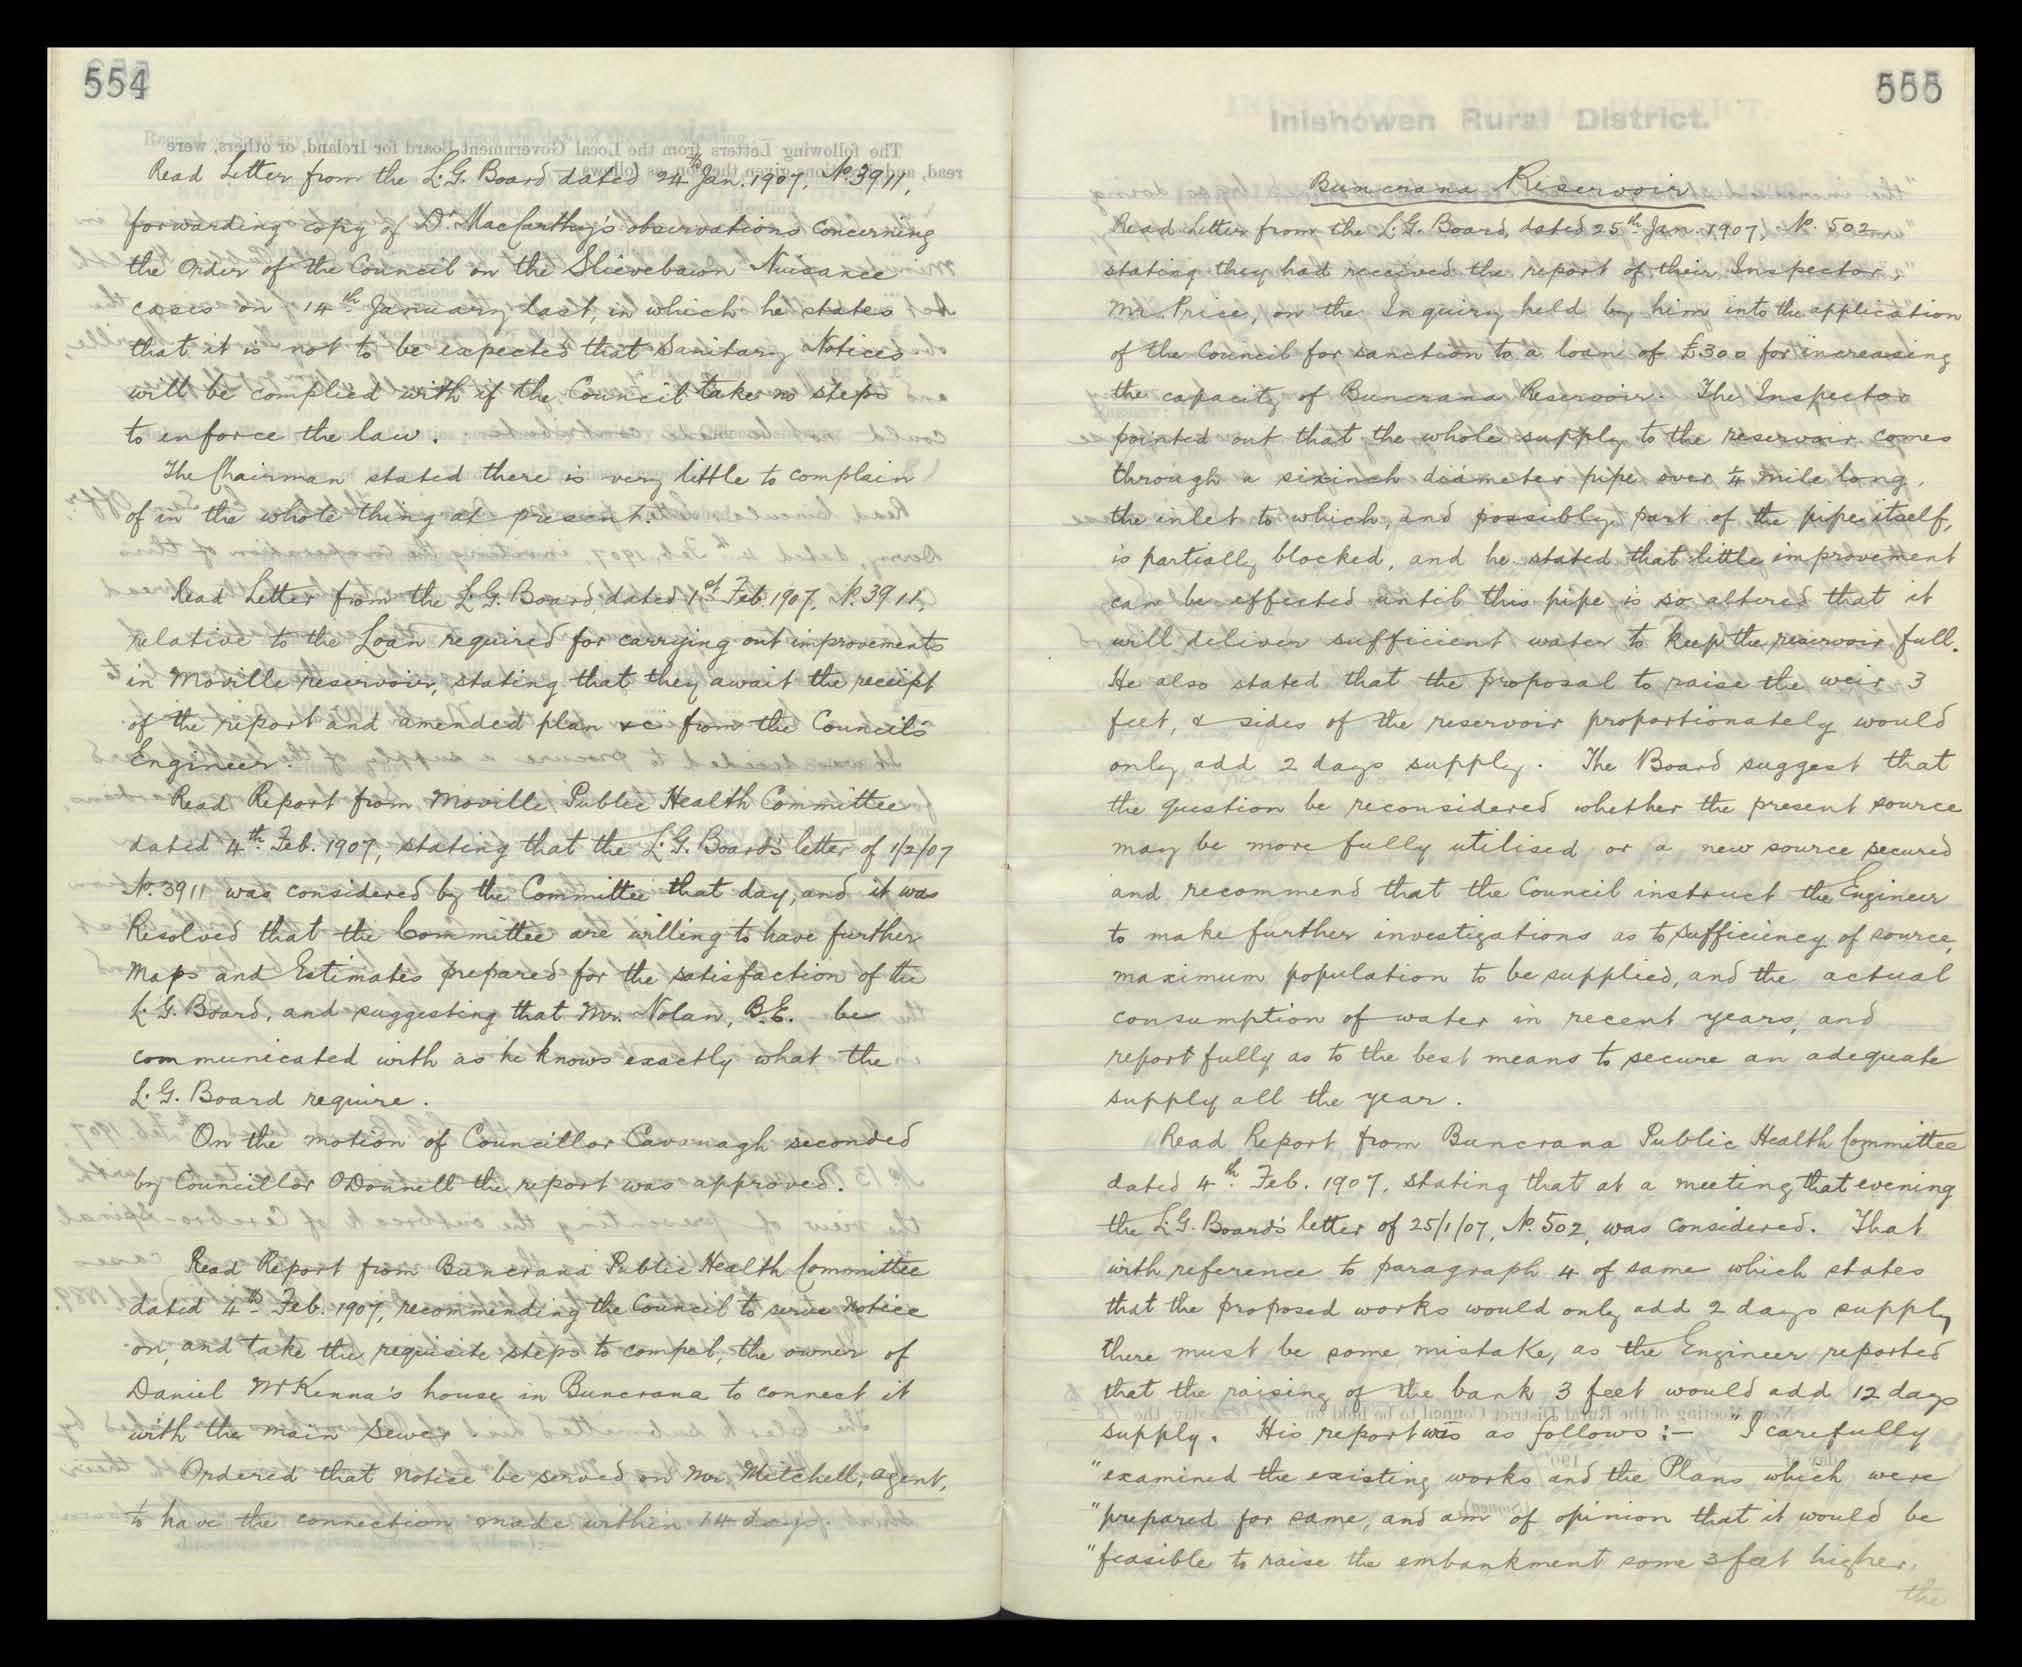 554
Read Letter from the L.G. Board dated 24th Jan. 1907, No. 3911,
forwarding copy of Dr. MacCarthy's observations concerning
the Order of the Council on the Slievebawn Nuisance
cases on 14th January last, in which he states
that it is not to be expected that Sanitary Notices
will be complied with if the Council take no steps
to enforce the law.
The Chairman stated there is very little to complain
of in the whole thing at present.
Read Letter from the L.G. Board dated 1st Feb. 1907, No. 3911,
relative to the Loan required for carrying out improvements
in Moville reservoir, stating that they await the receipt
of the report and amended plan &c from the Council's
Engineer.
Read Report from Moville Public Health Committee
dated 4th Feb. 1907, stating that the L.G. Board's letter of 1/2/07
No. 3911 was considered by the Committee that day, and it was
Resolved that the Committee are willing to have further
Maps and Estimates prepared for the satisfaction of the
L.G. Board, and suggesting that Mr. Nolan, B.E. be
communicated with as he knows exactly what the
L.G. Board require.
On the motion of Councillor Cavanagh seconded
by Councillor O'Donnell the report was approved.
Read Report from Buncrana Public Health Committee
dated 4th Feb. 1907, recommending the Council to serve notice
on, and take the requisite steps to compel, the owner of
Daniel McKenna's house in Buncrana to connect it
with the main sewer
Ordered that notice be served on Mr. Mitchell, agent,
to have the connection made within 14 days.
555
Inishowen Rural District.
Buncrana Reservoir
Read Letter from the L.G. Board, dated 25th Jan. 1907, No. 502
stating they had received the report of their Inspector,
Mr. Price, on the Inquiry held by him into the application
of the Council for sanction to a loan of £300 for increasing
the capacity of Buncrana Reservoir. The Inspector
pointed out that the whole supply to the reservoir comes
through a six inch diameter pipe over 1/4 mile long,
the inlet to which, and possibly part of the pipe itself,
is partially blocked, and he stated that little improvement
can be effected until this pipe is so altered that it
will deliver sufficient water to keep the reservoir full.
He also stated that the proposal to raise the weir 3
feet, & sides of the reservoir proportionately would
only add 2 days supply. The Board suggest that
the question be reconsidered whether the present source
may be more fully utilised or a new source secured
and recommend that the Council instruct the Engineer
to make further investigations as to sufficiency of source,
maximum population to be supplied, and the actual
consumption of water in recent years, and
report fully as to the best means to secure an adequate
supply all the year.
Read Report from Buncrana Public Health Committee
dated 4th Feb. 1907, stating that at a meeting that evening
the L.G. Board's letter of 25/1/07, No. 502, was considered. That
with reference to paragraph 4 of same which states
that the proposed works would only add 2 days supply
there must be some mistake, as the Engineer reported
that the raising of the bank 3 feet would add 12 days
supply. His report was as follows:- "I carefully
"examined the existing works and the Plans which were
"prepared for same, and am of opinion that it would be
"feasible to raise the embankment some 3 feet higher,
the